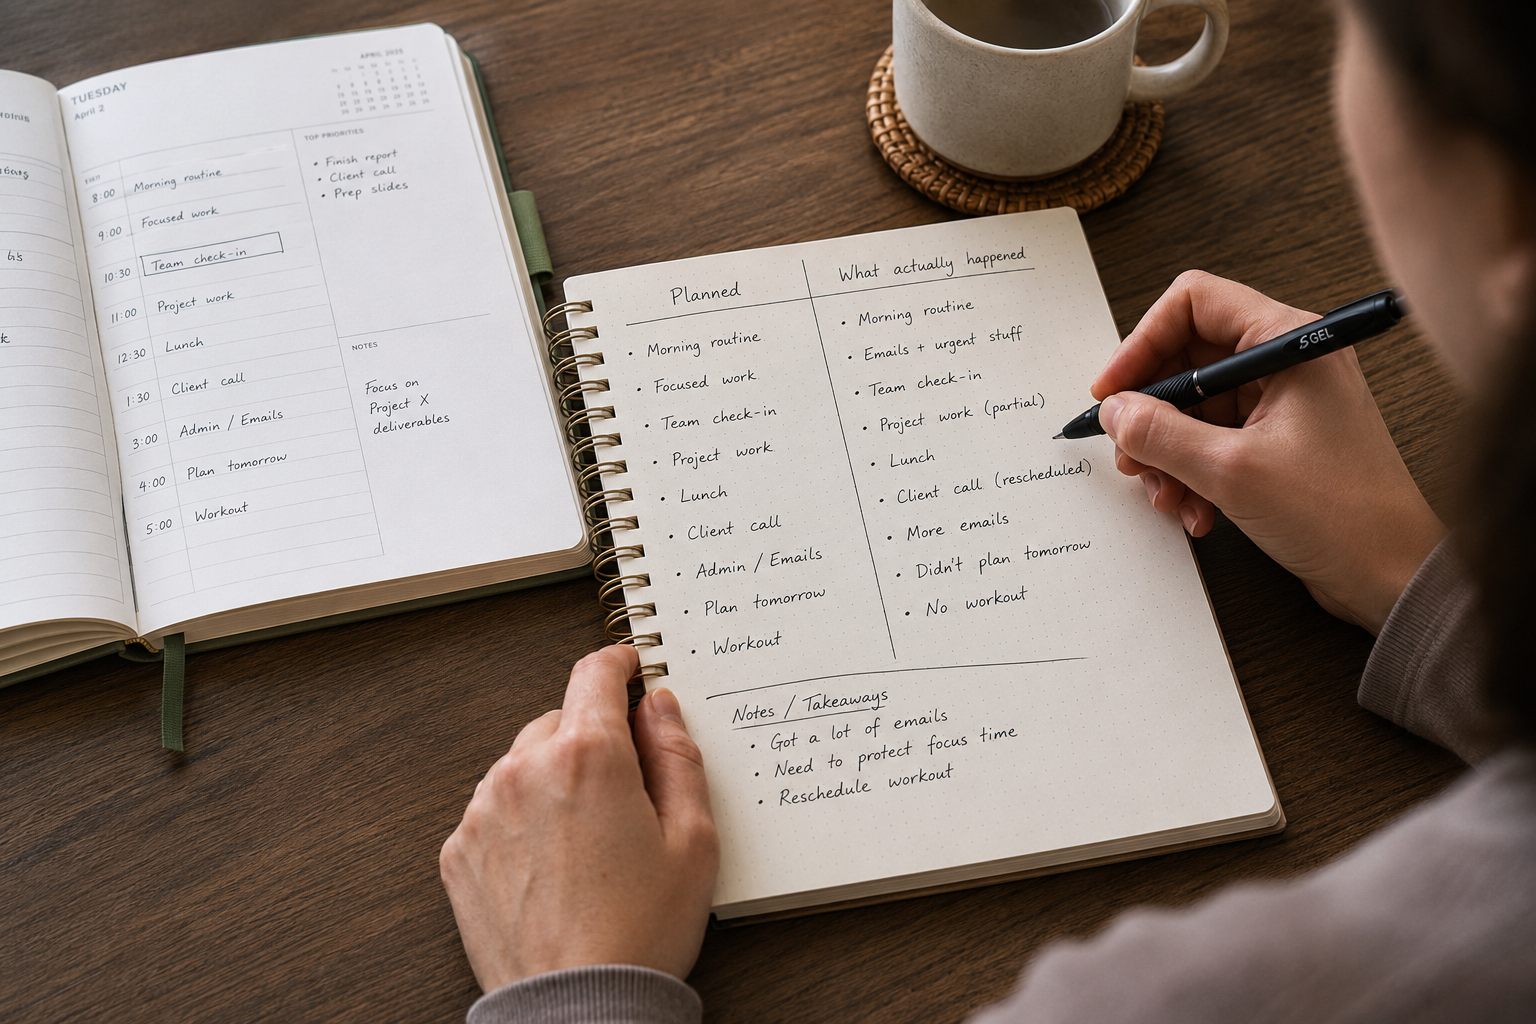 TUESDAY
April 2
8:00 Morning routine
9:00 Focused work
10:30 Team check-in
11:00 Project work
12:30 Lunch
1:30 Client call
3:00 Admin / Emails
4:00 Plan tomorrow
5:00 Workout
TOP PRIORITIES
• Finish report
• Client call
• Prep slides
NOTES
Focus on
Project X
deliverables
Planned
• Morning routine
• Focused work
• Team check-in
• Project work
• Lunch
• Client call
• Admin / Emails
• Plan tomorrow
• Workout
What actually happened
• Morning routine
• Emails + urgent stuff
• Team check-in
• Project work (partial)
• Lunch
• Client call (rescheduled)
• More emails
• Didn't plan tomorrow
• No workout
Notes / Takeaways
• Got a lot of emails
• Need to protect focus time
• Reschedule workout
GEL